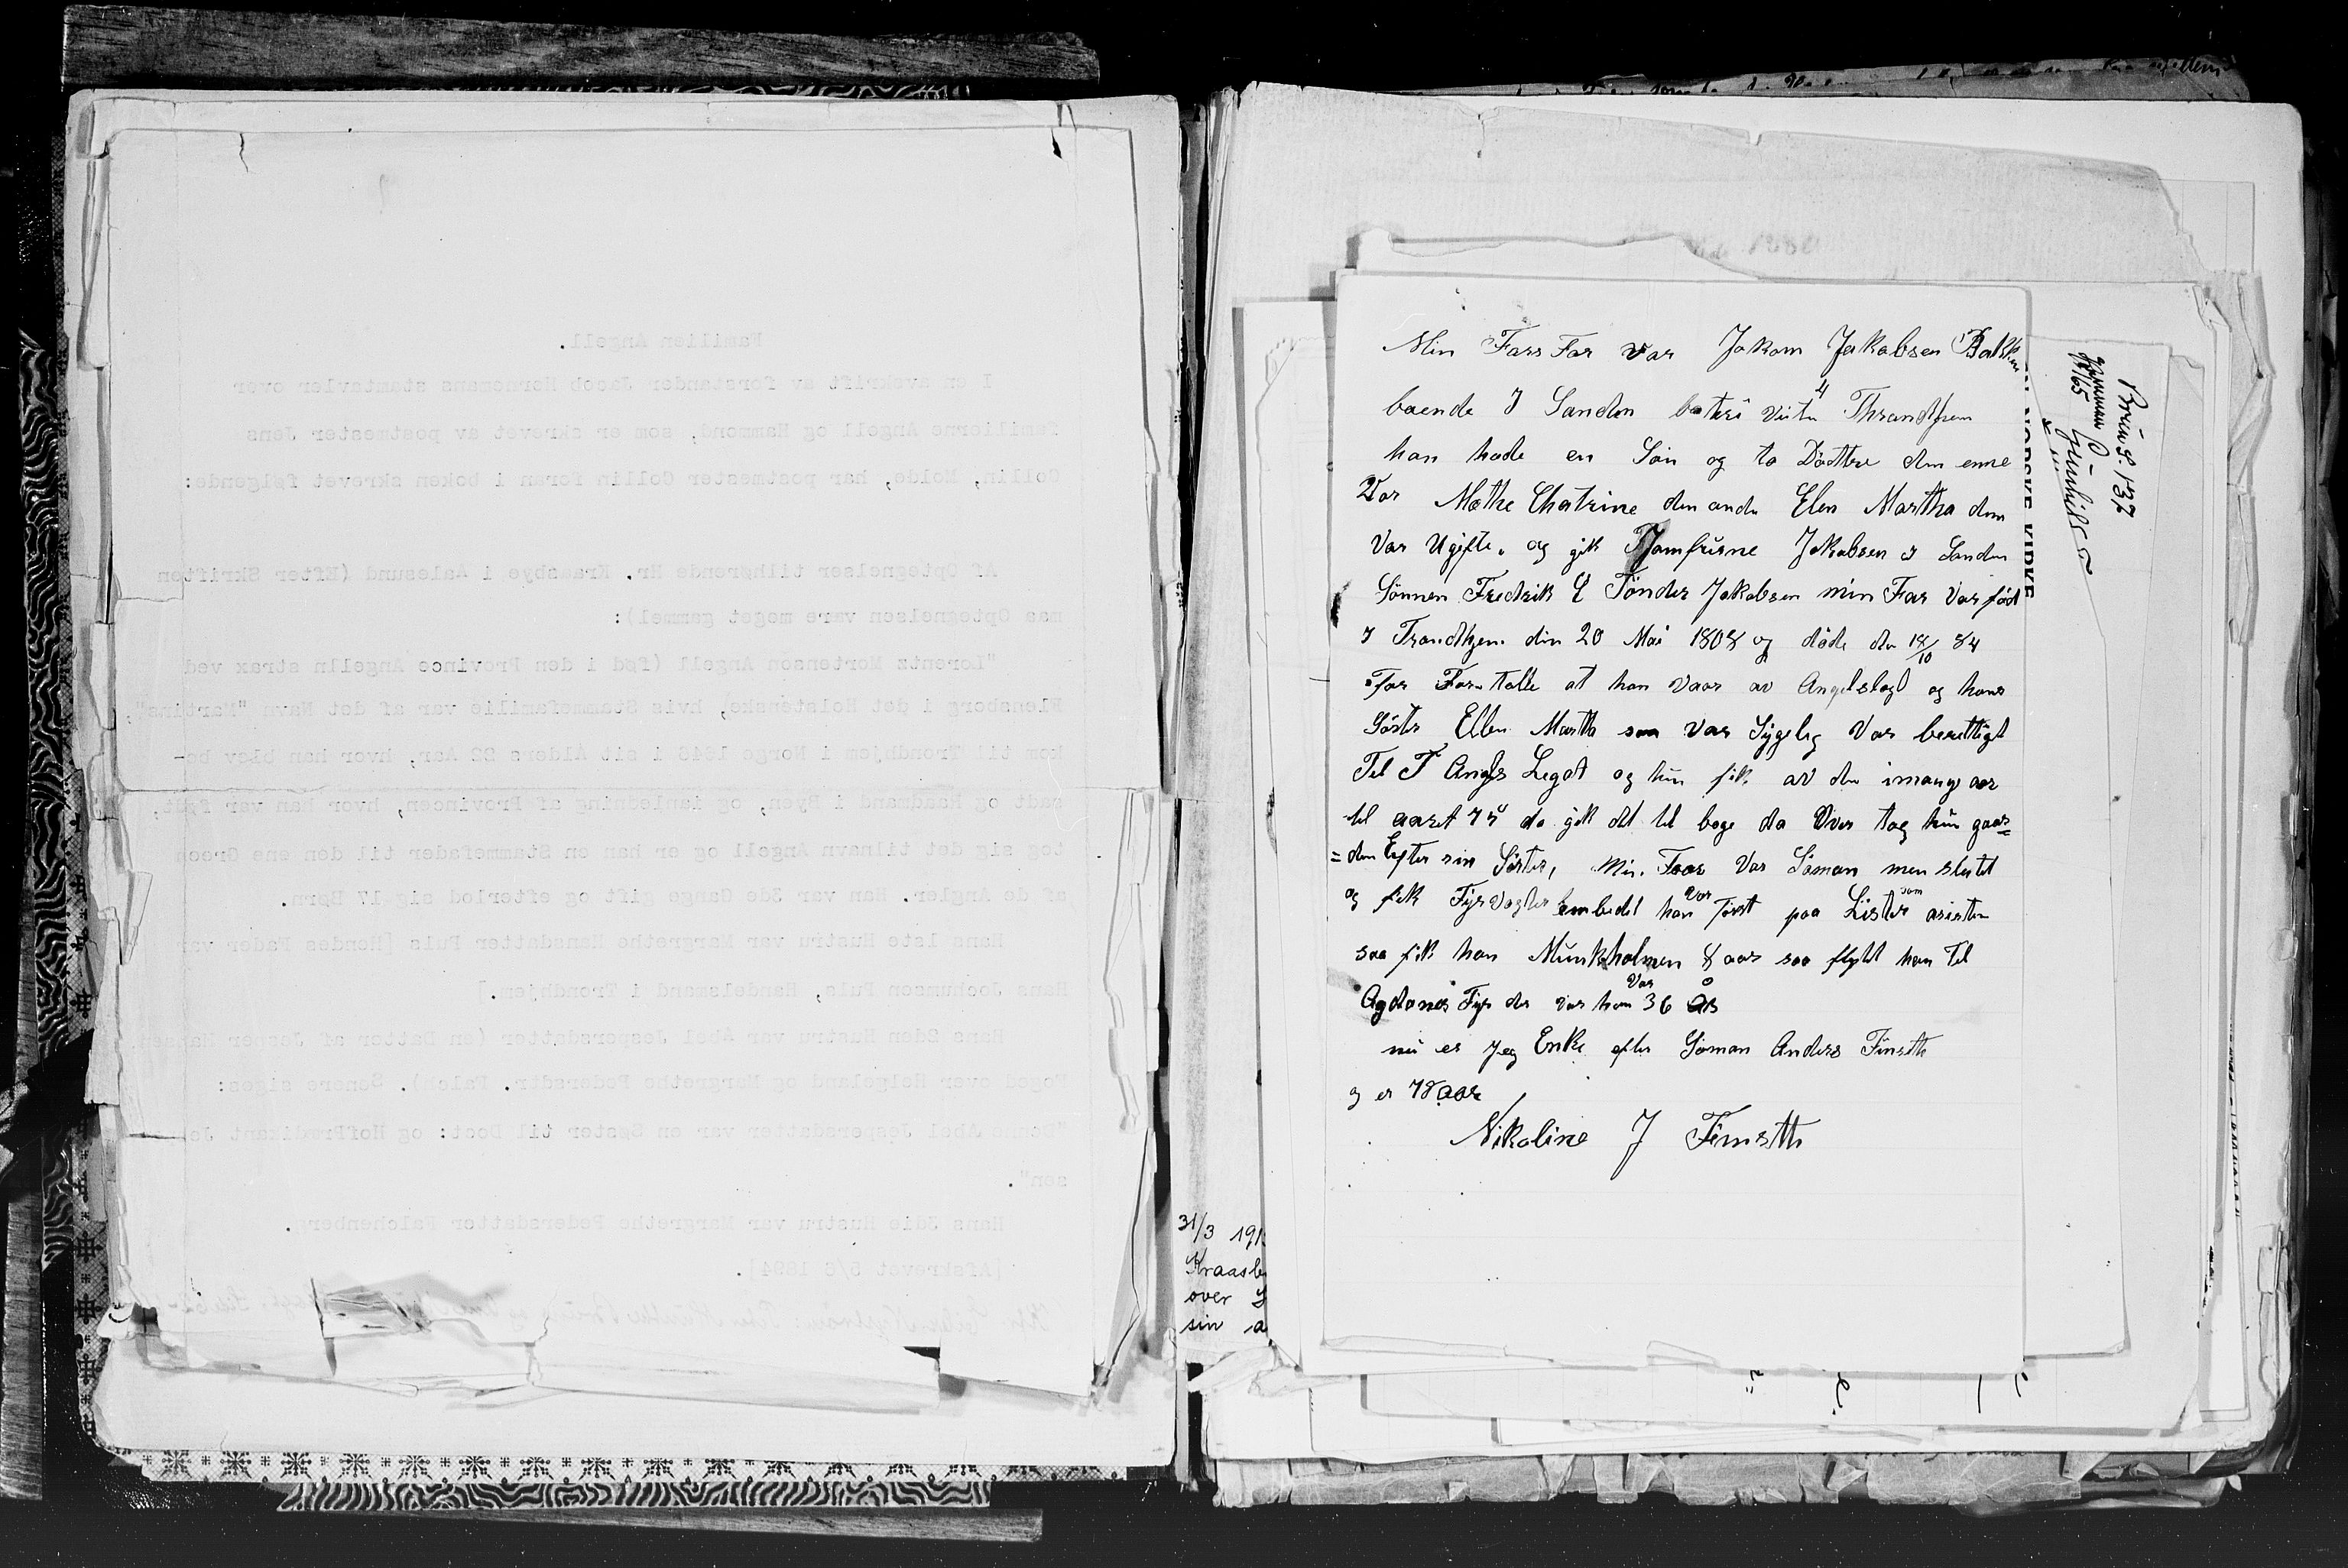 Familien Angell.
I en avskrift av forstander Jacob Hersemans stamtavler over
familierne Angell og Hammond, som er skrevet av postmester Jens
Collin, Molde, har postmester Collin foran i boken skrevet følgende:
Af Optegnelser tilhørende Hr. Kraasbye i Aalesund (Efter Skriften
maa Optegnelsen være meget gammel):
"Lorentz Mortensøn Angell (fød i den Province Angelln strax ved
Flensborg i det Holstenske, hvis Stammefamilie var af det Navn "Martins",
kom til Trondhjem i Norg 1646 i sit Alders 22 Aar, hvor han blev bo-
sadt og Raadmand i Byen, og ianledning af Provincen, hvor han var født,
tog sig det tilnavn Angell og er han en Stammefader til den ene Green
af de Angler. Han var 3de Gange gift og efterlod sig 17 Børn.
Hans 1ste Hustru var Margrethe Hansdatter Puls [Hendes Fader var
Hans Jochumsen Puls, Handelsmand i Trondhjem.]
Hans 2den Hustru var Abel Jespersdatter (en Datter af Jesper Hansen,
Foged over Helgeland og Margrethe Pedersdtr. Falch). Senere siges:
Abel Jespersdatter var en Søster til Doct: og HofPrædikant Je
sen".
Hans 3die Hustru var Margrethe Pedersdatter Falchenberg.
[Afskrevet 5/6 1894].
31/3 191
Kraasb
over
sin a
Min Fars Far var Jakom Jakobsen Bakken
boende I Sanden bateri Viita 4 Thrandhjem
han hade en Sön og to Döttere den enne
Var Mathe Chatrine den ande Elen Martha dem
Var Ugifte. og gik Jomfruene Jakobsen I Sanden
Sönnen Fredrik L Tönder Jakobsen min Far Var föd
I Trondhjem din 20 Mai 1808 og döde den 18/10 84
Far Fortalte at han Vaar av Angelslagt og hans
Söster Ellen Martha som Var Sygelig Var berettigt
Til T Angls Legat og hun fik av den i mange aar
til aaret 75 da gik det til bage da Over tog hun gaar=
=den Efter sin Söster, Min Faar Var Söman men slutet
og fik FyrVagter embedet han Var Först paa Lister som asistn
saa fik han Munkholmen 8 aar saa flytet han Til
Agdanes Fyr der Var han Var 36 År
nu er Jeg Enke efter Sömon Anders Finseth
og er 78 aar
Nikoline J Finseth
NORSKE KIRKE
Brün s. 137